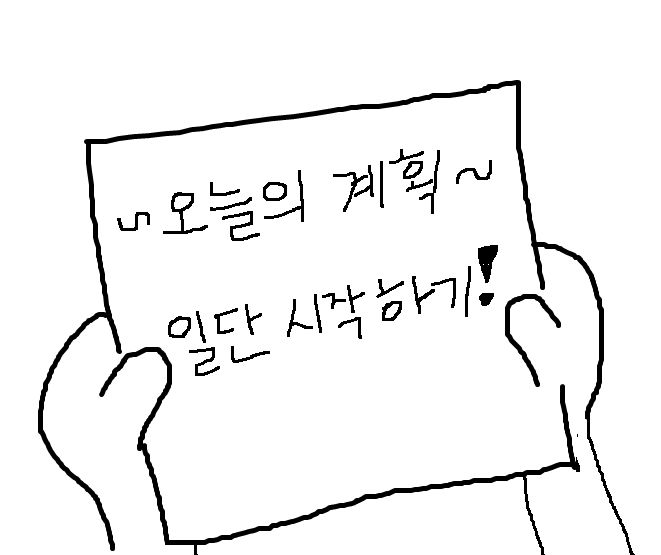 ~오늘의 계획~
일단 시작하기!